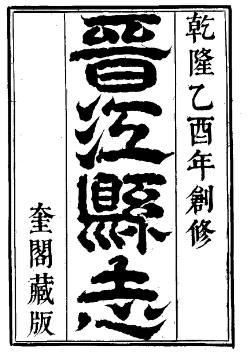 乾隆乙酉年創修
晉江縣志
奎閣藏版